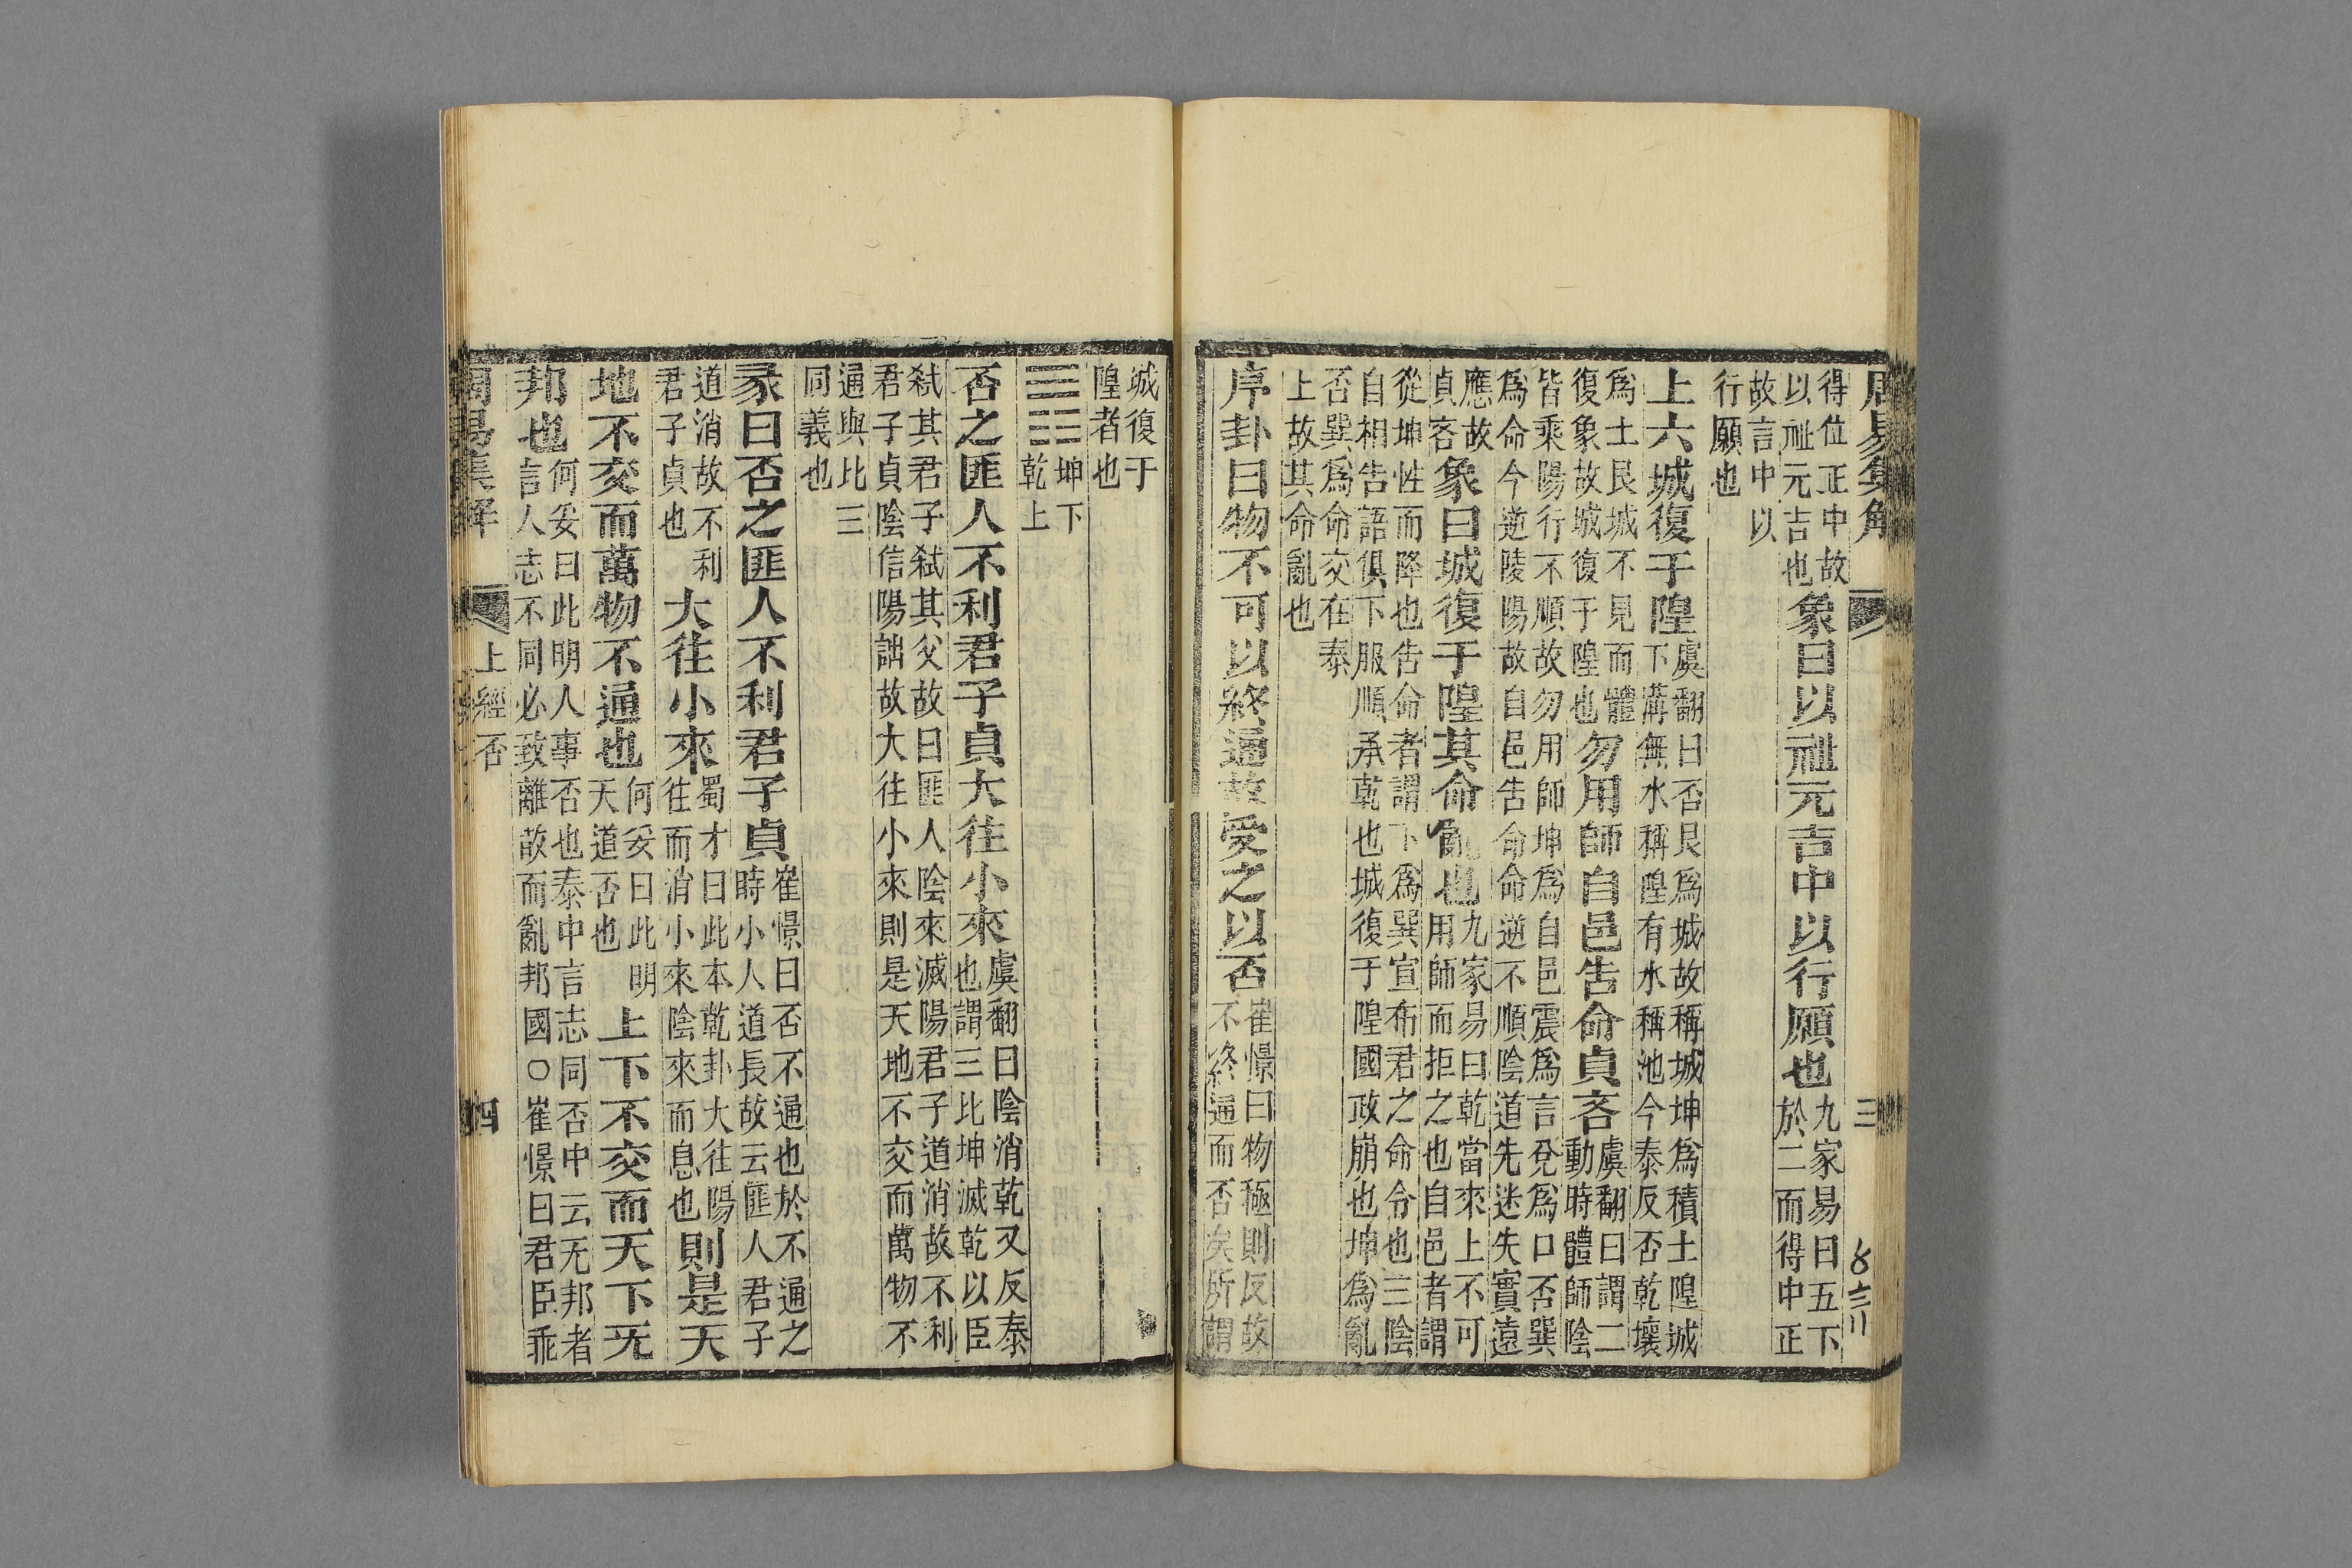 周易集解 三
得位正中故
以祉元吉也
象曰以祉元吉中以行願也
九家易曰五下
於二而得中正
故言中以
行願也
上六城復于隍
虞翻曰否艮爲城故稱城坤爲積土隍城
下溝無水稱隍有水稱池今泰反否乾壞
爲土艮城不見而體
復象故城復于隍也
勿用師自邑告命貞吝
虞翻曰謂二
動時體師陰
皆乘陽行不順故勿用師坤爲自邑震爲言兌爲口否巽
爲命今逆陵陽故自邑告命命逆不順陰道先迷失實遠
應故
貞吝
象曰城復于隍其命亂也
九家易曰乾當來上不可
用師而拒之也自邑者謂
從坤性而降也告命者謂下爲巽宣布君之命令也三陰
自相告語俱下服順承乾也城復于隍國政崩也坤爲亂
否巽爲命交在泰
上故其命亂也
序卦曰物不可以終通故受之以否
崔憬曰物極則反故
不終通而否矣所謂
城復于
隍者也
䷋
坤下
乾上
否之匪人不利君子貞大往小來
虞翻曰陰消乾又反泰
也謂三比坤滅乾以臣
弑其君子弑其父故曰匪人陰來滅陽君子道消故不利
君子貞陰信陽詘故大往小來則是天地不交而萬物不
通與比三
同義也
彖曰否之匪人不利君子貞
崔憬曰否不通也於不通之
時小人道長故云匪人君子
道消故不利
君子貞也
大往小來
蜀才曰此本乾卦大往陽
往而消小來陰來而息也
則是天
地不交而萬物不通也
何妥曰此明
天道否也
上下不交而天下无
邦也
何妥曰此明人事否也泰中言志同否中云无邦者
言人志不同必致離故而亂邦國○崔憬曰君臣乖
周易集解 上經 否 四